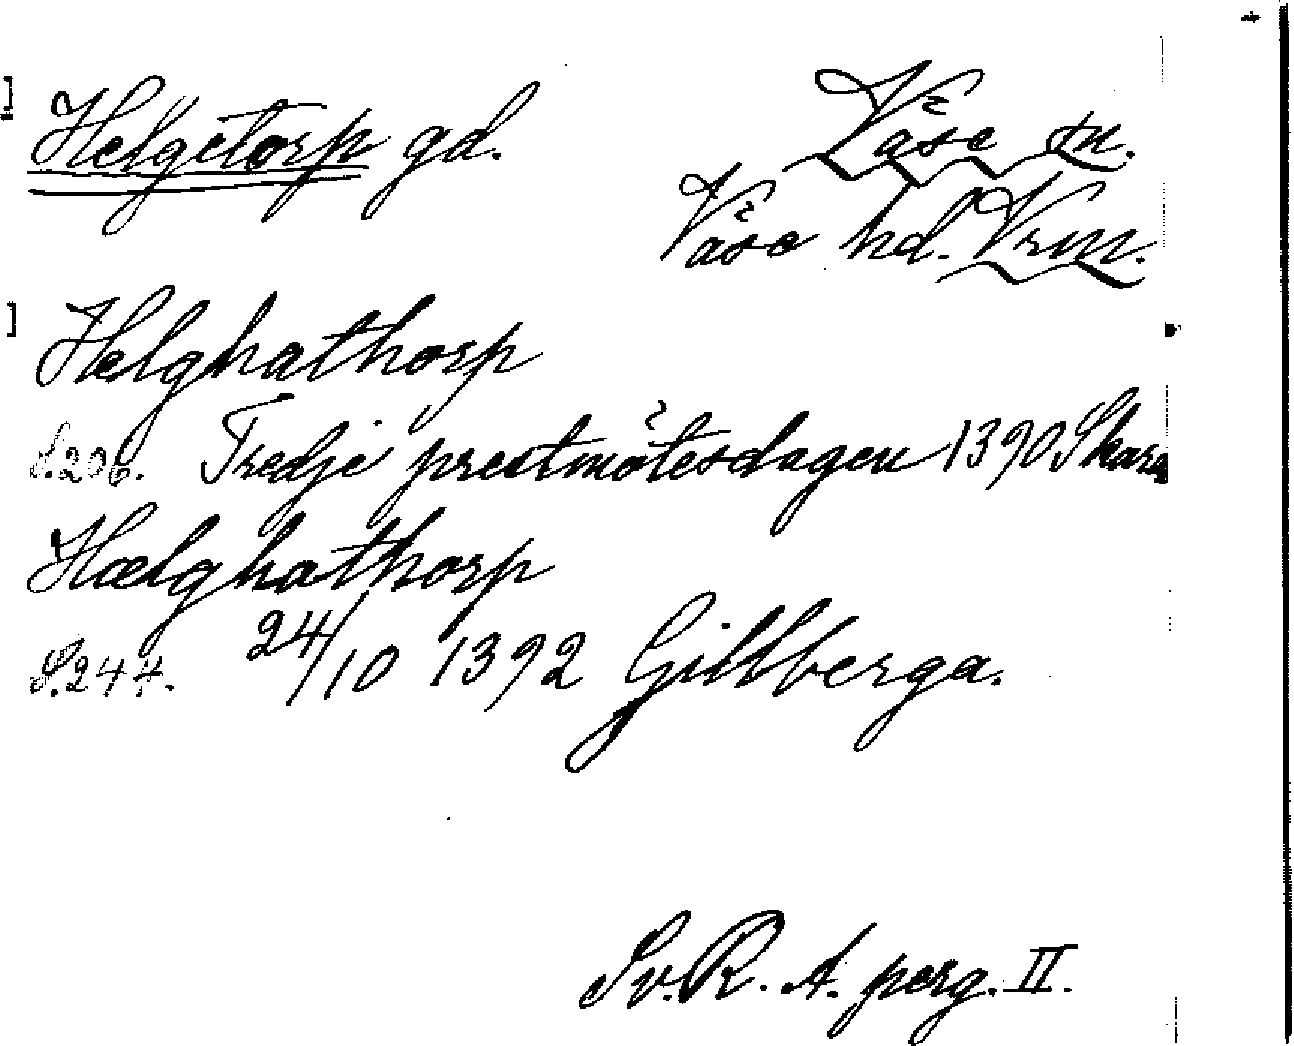 ] Helgetorp gd. Väse sn.
Väse hd. Vrm.
] Hælghathorp
S.206. Tredje prestmötesdagen 1390 Skara
Hælghathorp
S.244. 24/10 1392 Gillberga.
Sv. R. A. perg. II.